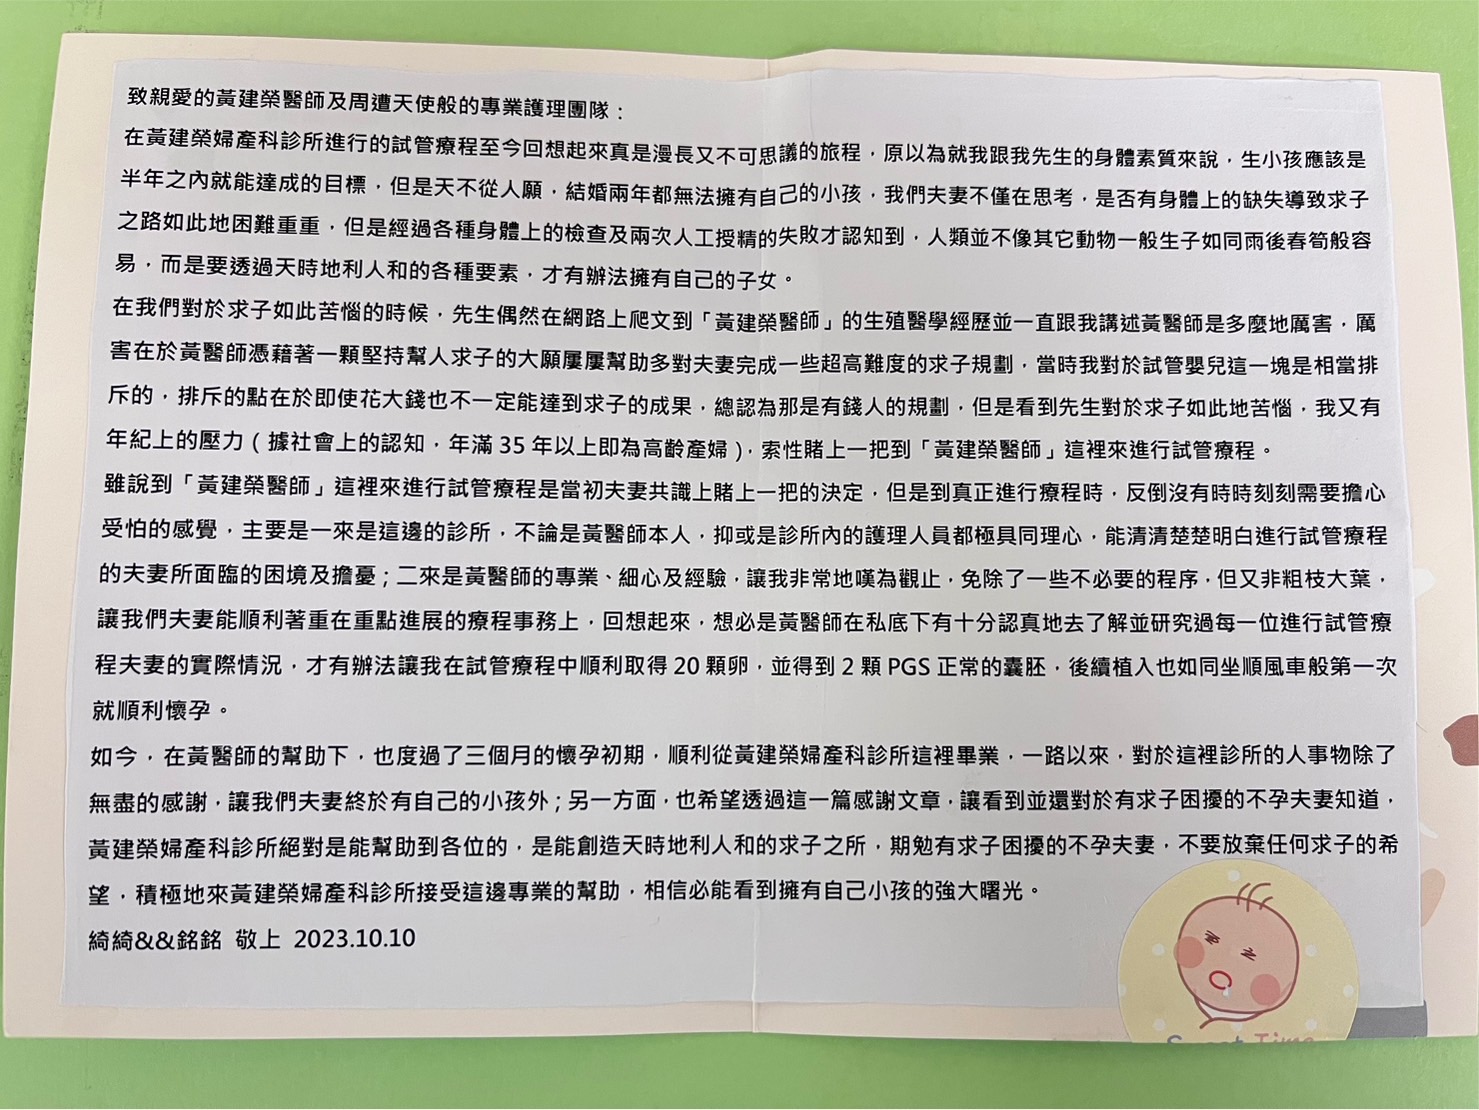 致親愛的黃建榮醫師及周遭天使般的專業護理團隊：
在黃建榮婦產科診所進行的試管療程至今回想起來真是漫長又不可思議的旅程，原以為就我跟我先生的身體素質來說，生小孩應該是
半年之內就能達成的目標，但是天不從人願，結婚兩年都無法擁有自己的小孩，我們夫妻不僅在思考，是否有身體上的缺失導致求子
之路如此地困難重重，但是經過各種身體上的檢查及兩次人工授精的失敗才認知到，人類並不像其它動物一般生子如同雨後春筍般容
易，而是要透過天時地利人和的各種要素，才有辦法擁有自己的子女。
在我們對於求子如此苦惱的時候，先生偶然在網路上爬文到「黃建榮醫師」的生殖醫學經歷並一直跟我講述黃醫師是多麼地厲害，厲
害在於黃醫師憑藉著一顆堅持幫人求子的大願屢屢幫助多對夫妻完成一些超高難度的求子規劃，當時我對於試管嬰兒這一塊是相當排
斥的，排斥的點在於即使花大錢也不一定能達到求子的成果，總認為那是有錢人的規劃，但是看到先生對於求子如此地苦惱，我又有
年紀上的壓力（據社會上的認知，年滿 35 年以上即為高齡產婦），索性賭上一把到「黃建榮醫師」這裡來進行試管療程。
雖說到「黃建榮醫師」這裡來進行試管療程是當初夫妻共識上賭上一把的決定，但是到真正進行療程時，反倒沒有時時刻刻需要擔心
受怕的感覺，主要是一來是這邊的診所，不論是黃醫師本人，抑或是診所內的護理人員都極具同理心，能清清楚楚明白進行試管療程
的夫妻所面臨的困境及擔憂；二來是黃醫師的專業、細心及經驗，讓我非常地嘆為觀止，免除了一些不必要的程序，但又非粗枝大葉，
讓我們夫妻能順利著重在重點進展的療程事務上，回想起來，想必是黃醫師在私底下有十分認真地去了解並研究過每一位進行試管療
程夫妻的實際情況，才有辦法讓我在試管療程中順利取得 20 顆卵，並得到 2 顆 PGS 正常的囊胚，後續植入也如同坐順風車般第一次
就順利懷孕。
如今，在黃醫師的幫助下，也度過了三個月的懷孕初期，順利從黃建榮婦產科診所這裡畢業，一路以來，對於這裡診所的人事物除了
無盡的感謝，讓我們夫妻終於有自己的小孩外；另一方面，也希望透過這一篇感謝文章，讓看到並還對於有求子困擾的不孕夫妻知道，
黃建榮婦產科診所絕對是能幫助到各位的，是能創造天時地利人和的求子之所，期勉有求子困擾的不孕夫妻，不要放棄任何求子的希
望，積極地來黃建榮婦產科診所接受這邊專業的幫助，相信必能看到擁有自己小孩的強大曙光。
綺綺&&銘銘 敬上 2023.10.10
Sweet Time